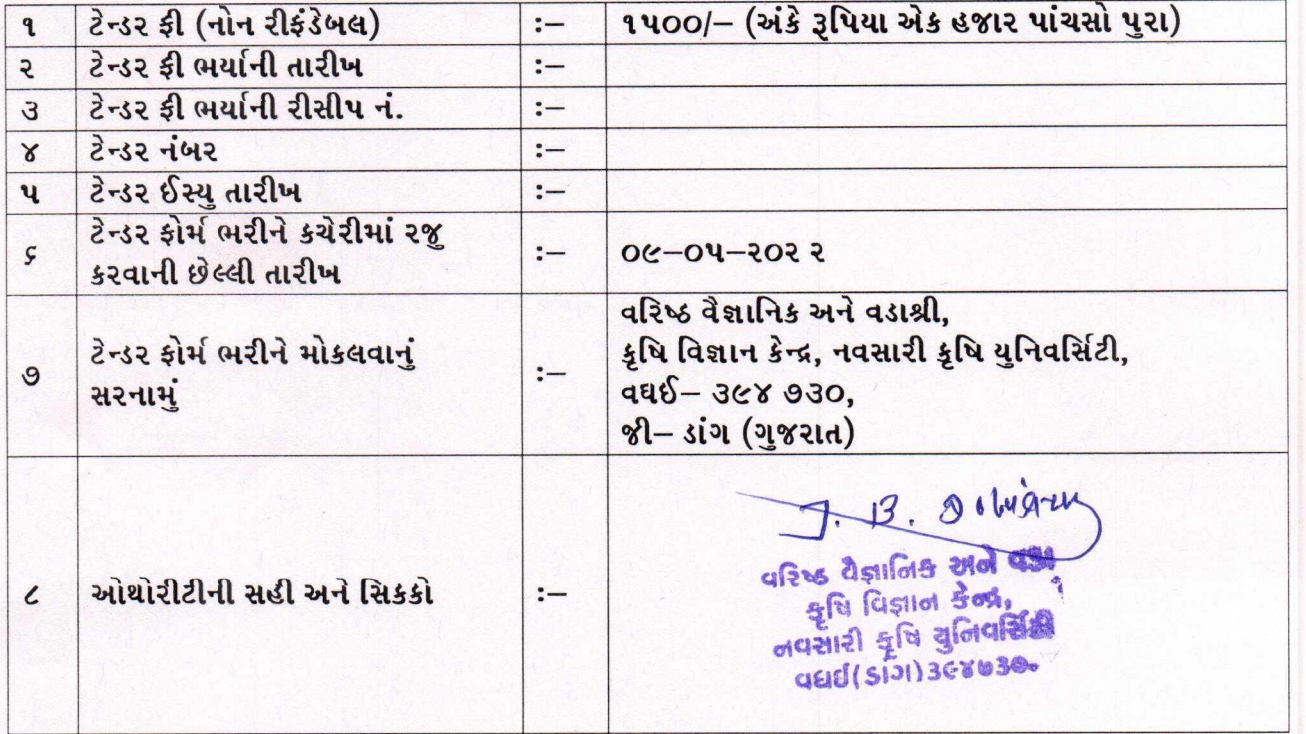 ૧ ટેન્ડર ફી (નોન રીફંડેબલ) :– ૧૫૦૦/– (અંકે રૂપિયા એક હજાર પાંચસો પુરા)
૨ ટેન્ડર ફી ભર્યાની તારીખ :–
૩ ટેન્ડર ફી ભર્યાની રીસીપ નં. :–
૪ ટેન્ડર નંબર :–
૫ ટેન્ડર ઈસ્યુ તારીખ :–
૬ ટેન્ડર ફોર્મ ભરીને કચેરીમાં રજુ
કરવાની છેલ્લી તારીખ :– ૦૯–૦૫–૨૦૨ ૨
૭ ટેન્ડર ફોર્મ ભરીને મોકલવાનું
સરનામું :–
વરિષ્ઠ વૈજ્ઞાનિક અને વડાશ્રી,
કૃષિ વિજ્ઞાન કેન્દ્ર, નવસારી કૃષિ યુનિવર્સિટી,
વઘઈ– ૩૯૪ ૭૩૦,
જી– ડાંગ (ગુજરાત)
૮ ઓથોરીટીની સહી અને સિકકો :–
J. B.
વરિષ્ઠ વૈજ્ઞાનિક અને વડા
કૃષિ વિજ્ઞાન કેન્દ્ર,
નવસારી કૃષિ યુનિવર્સિટી
વઘઈ(ડાંગ)૩૯૪૭૩૦.